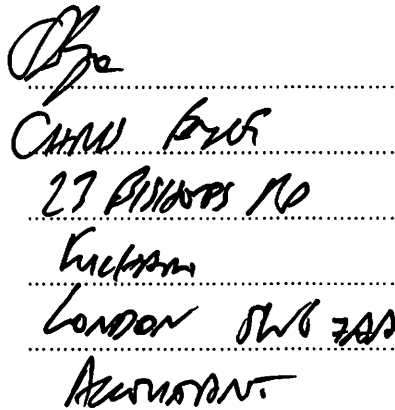 CHRIS
23 BISHOPS RD
FULHAM
LONDON SW6 7AD
ACCOUNTANT